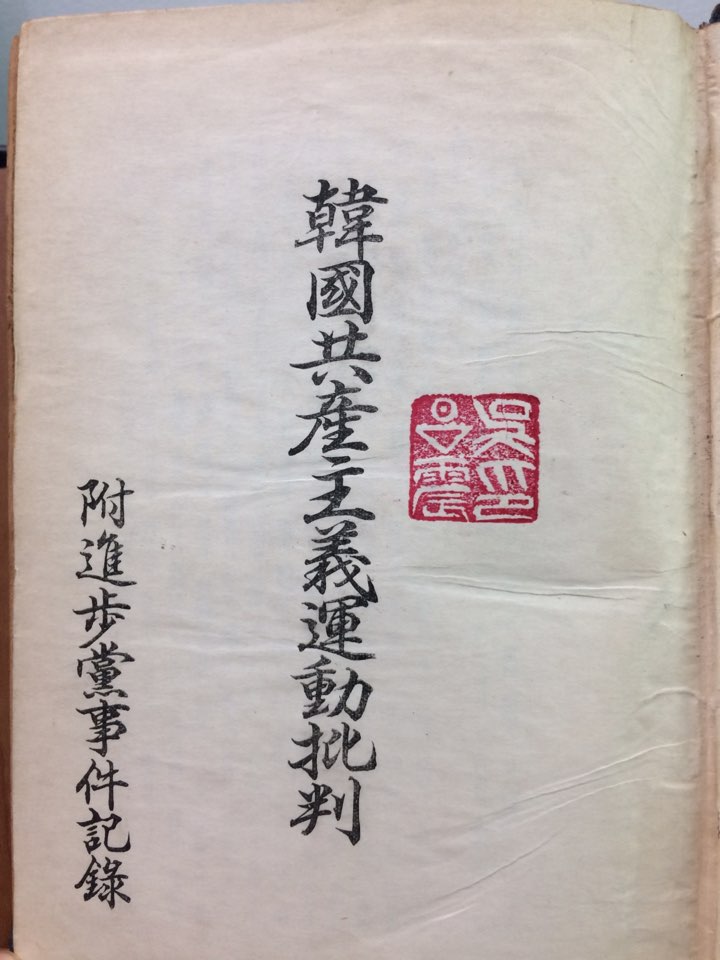 韓國共産主義運動批判
附進步黨事件記錄
吳印
震